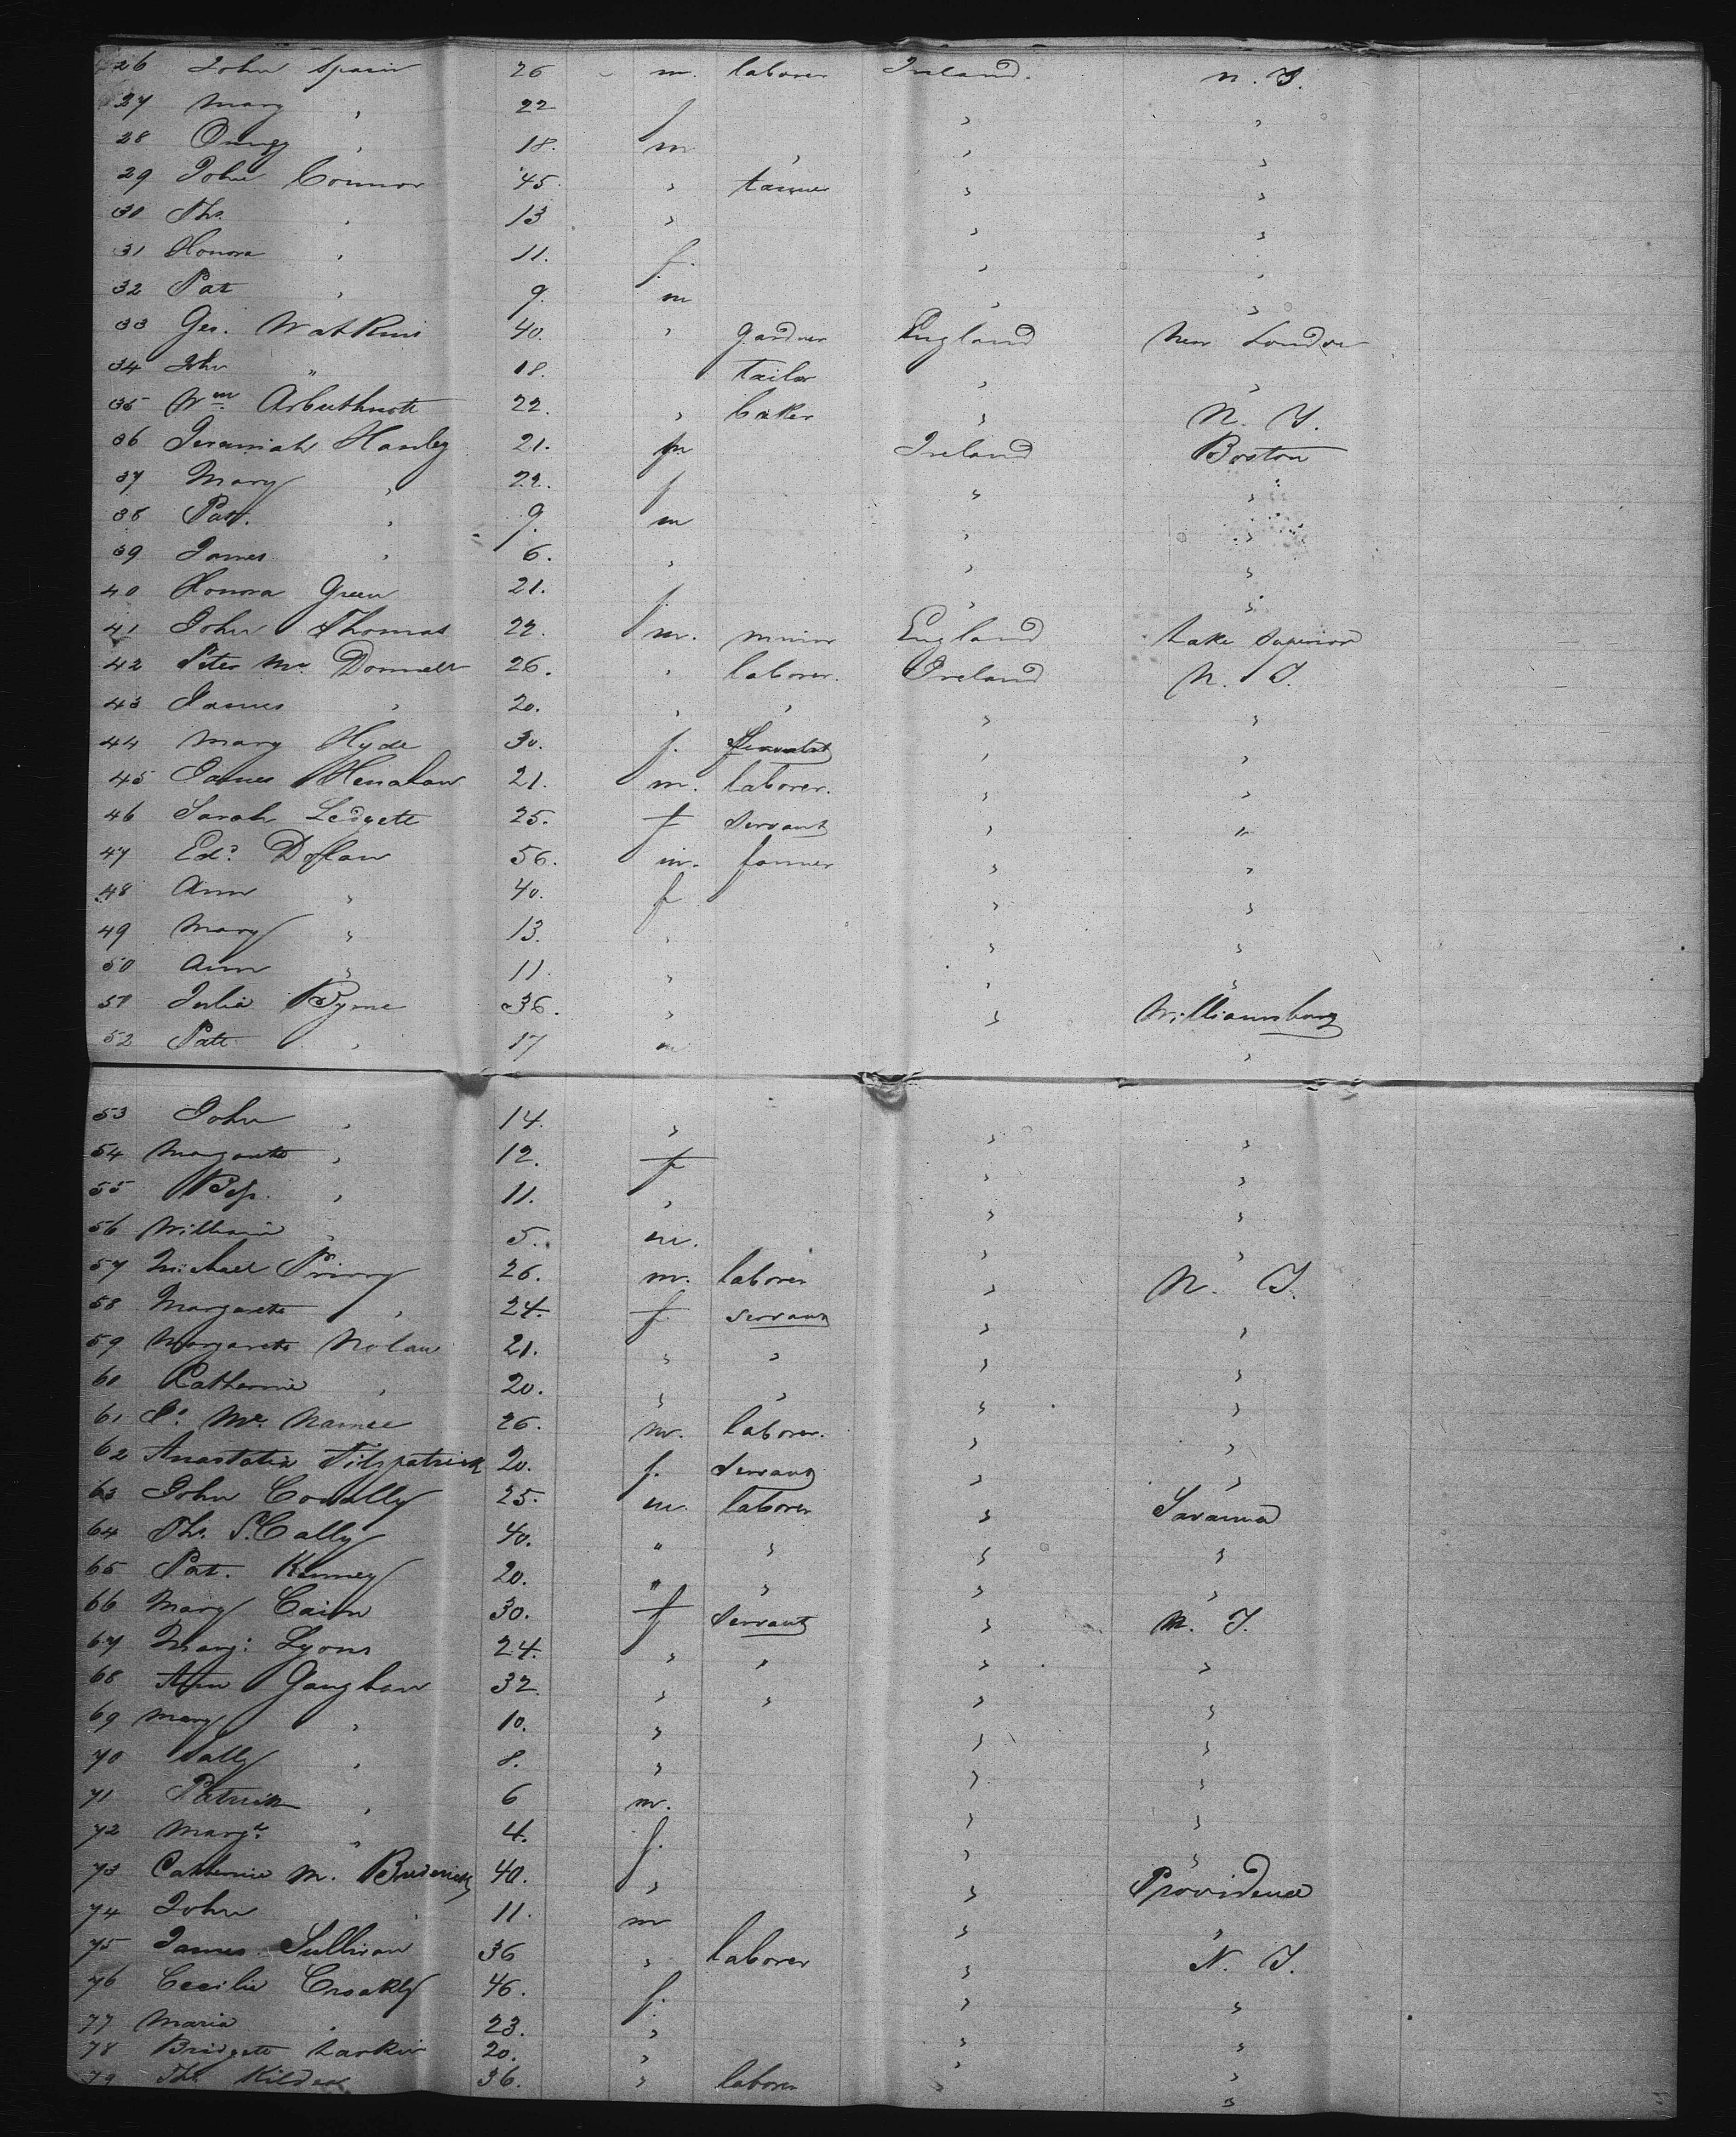 26 John Spain 26 m. laborer Ireland. N. Y.
27 Mary , 22 f , ,
28 , 18. m , , ,
29 John Connor 45. , , ,
30 Ths. , 13 , , ,
31 Honora , 11. f. , ,
32 Pat , 9. m , ,
33 Geo. Watkins 40. , gardner England New London
34 John " 18. tailor , ,
35 Wm. Arbuthnott 22. , baker , N. Y.
36 Jeremiah Hanley 21. m Ireland Boston
37 Mary , 22. f , ,
38 Pat. , 9. m , ,
39 James , 6. , , ,
40 Honora Green 21. f. , ,
41 John Thomas 22. m. minor England Lake Superior
42 Peter Mc. Donnell 26. , laborer. Ireland N. Y.
43 James , 20. , , , ,
44 Mary Hyde 30. f. Servant , ,
45 James Henahan 21. m. laborer. , ,
46 Sarah Ledgett 25. f Servant , "
47 Edd. Dolan 56. m. farmer , ,
48 Ann , 40. f , ,
49 Mary , 13. , , ,
50 Ann , 11. , , ,
51 Julia Byrne 36. , , Williamsburg
52 Patt. , 17 m ,
53 John , 14. , , ,
54 Margarett , 12. f , ,
55 Bess. , 11. , , ,
56 William , 5. m. , ,
57 Michael Priory 26. m. laborer , N. Y.
58 Margarett , 24. f. servant , ,
59 Margarett Nolan 21. , , , ,
60 Catherine , 20. , , , ,
61 Mc. Namee 26. m. laborer. , ,
62 Anastatia Fitzpatrick 20. f. Servant , ,
63 John Conolly 25. m. laborer , Savanna
64 Ths. 40. " , , ,
65 Pat. Kenney 20. " , , ,
66 Mary Cain 30. f Servant , N. Y.
67 Marg: Lyons 24. , , , ,
68 Ann Gaughan 32. , , , ,
69 Mary , 10. , , ,
70 Sally , 8. , , ,
71 Patrick , 6 m. , ,
72 Margt. " 4. f. , ,
73 Catherine M. Broderick 40. , , Providence
74 John , 11. m , ,
75 James Sullivan 36 , laborer , N. Y.
76 Cecilie Croakly 46. f. , ,
77 Maria , 23. , , ,
78 Bridgett Larkin 20. , , ,
79 Ths. 36. , laborer , ,